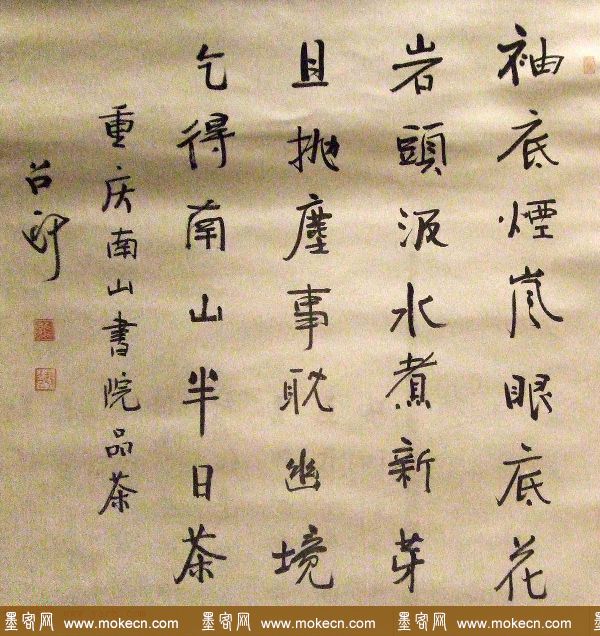 袖底煙嵐眼底花
岩頭汲水煮新芽
且拋塵事耽幽境
乞得南山半日茶
重庆南山書院品茶
墨客网 www.mokecn.com 墨客网 www.mokecn.com 墨客网 www.mokecn.com